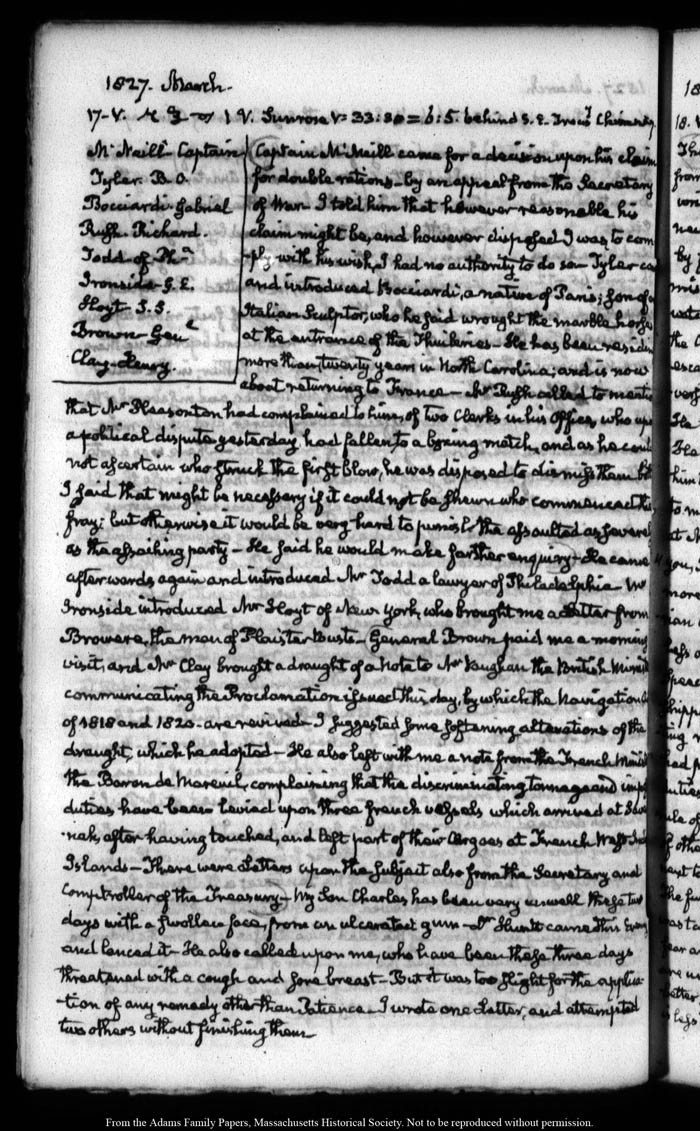 1827. March.
17-V. 1 V. Sunrose V: 33:30 = 6:5. behind S.E. Chimney
McNeill Captain
Tyler. B. O.
Bocciardi Gabriel
Rush. Richard.
Todd of Pha
Ironside G. E.
Hoyt S. S.
Brown Genl
Clay. Henry.
Captain McNeill came for a decision upon his claim
for double rations by an appeal from the Secretary
of War. I told him that however reasonable his
claim might be, and however disposed I was to com
-ply with his wish, I had no authority to do so— Tyler
and introduced Bocciardi, a native of Paris; Son of
Italian Sculptor, who he said wrought the marble horses
at the entrance of the Thuileries— He has been
more than twenty years in North Carolina; and is now
about returning to France— Mr Rush called to
that Mr Pleasonton had complained to him, of two Clerks in his Office, who
a political dispute yesterday, had fallen to a boxing match, and as he
not ascertain who struck the first blow, he was disposed to dismiss them
I said that might be necessary if it could not be shewn who commenced the
fray; but otherwise it would be very hard to punish the assaulted as
as the assailing party— He said he would make further enquiry— He came
afterwards again and introduced Mr Todd a lawyer of Philadelphia Mr
Ironside introduced Mr Hoyt of New York, who brought me a Letter from
Browere, the man of Plaister Busts— General Brown paid me a morning
visit, and Mr Clay brought a draught of a Note to Mr Vaughan the British
communicating the Proclamation issued this day, by which the Navigation
of 1818 and 1820. are revived— I suggested some softening alterations of the
draught, which he adopted— He also left with me a note from the French
the Baron de Mareuil, complaining that the discriminating tonnage and
duties have been levied upon three french vessels which arrived at
nah, after having touched, and left part of their Cargoes at French West
Islands— There were Letters upon the subject also from the Secretary and
Comptroller of the Treasury— My Son Charles has been very unwell these two
days with a swollen face, from an ulcerated gum— Dr Huntt came this
and lanced it— He also called upon me, who have been these three days
threatened with a cough and sore breast— But it was too slight for the applica
-tion of any remedy other than Patience— I wrote one Letter, and attempted
two others without finishing them—
From the Adams Family Papers, Massachusetts Historical Society. Not to be reproduced without permission.